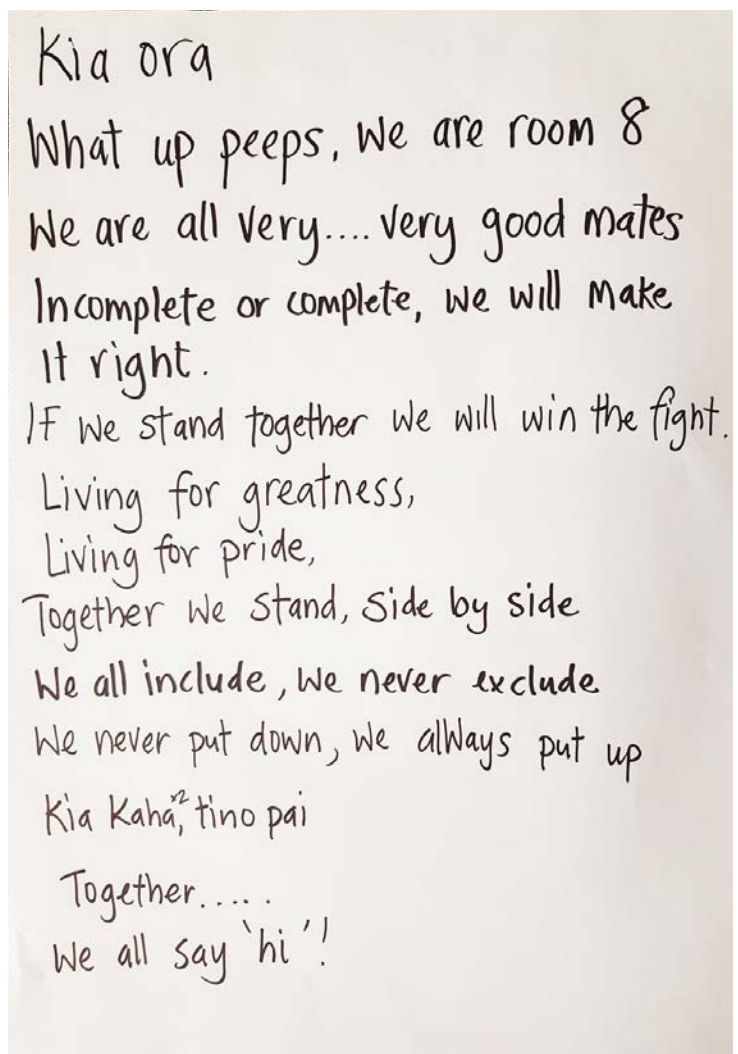 Kia ora
What up peeps, We are room 8
We are all very.... very good mates
Incomplete or complete, we will make
It right.
If we stand together we will win the fight.
Living for greatness,
Living for pride,
Together we stand, side by side
We all include, we never exclude
We never put down, we always put up
Kia Kaha,x2 tino pai
Together.....
We all say 'hi'!